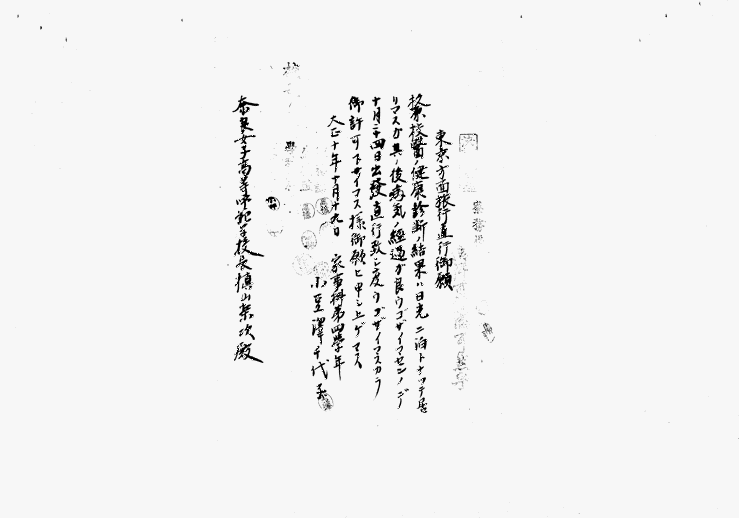 東京方面旅行直行御願
校醫ノ健康診断ノ結果ハ日光ニ泊トナッテ居
リマスガ其ノ後病気ノ経過ガ良ウゴザイマセンノデ
十月二十四日出發直行致シ度ウゴザイマスカラ
御許可下サイマス様御願ヒ申シ上ゲマス
大正十年十月十九日 家事科第四學年
小豆澤千代
奈良女子高等師範学校長槙山榮次殿